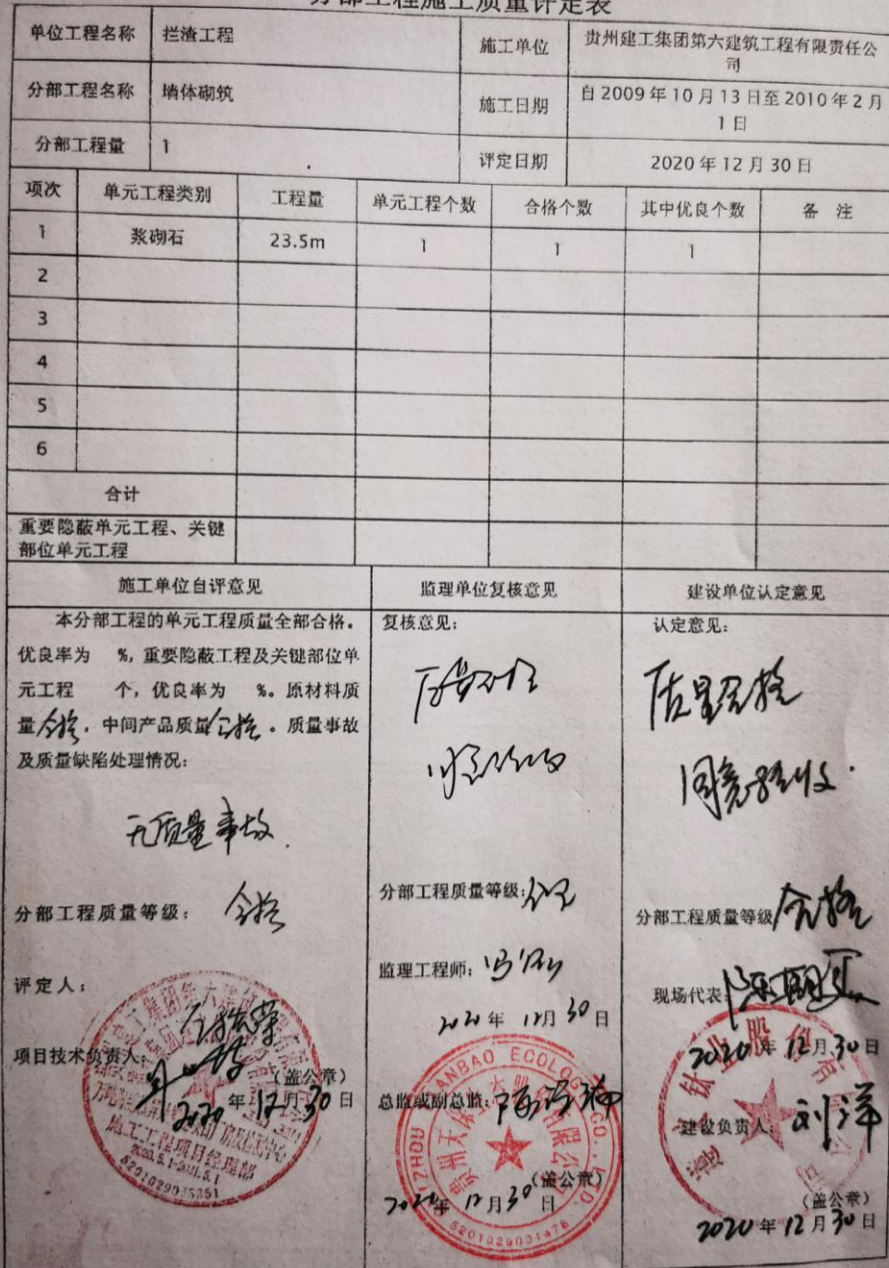 分部工程施工质量评定表
单位工程名称 拦渣工程 施工单位 贵州建工集团第六建筑工程有限责任公
司
分部工程名称 墙体砌筑 施工日期 自 2009 年 10 月 13 日至 2010 年 2 月
1 日
分部工程量 1 评定日期 2020 年 12 月 30 日
项次 单元工程类别 工程量 单元工程个数 合格个数 其中优良个数 备 注
1 浆砌石 23.5m 1 1 1
2
3
4
5
6
合计
重要隐蔽单元工程、关键
部位单元工程
施工单位自评意见 监理单位复核意见 建设单位认定意见
本分部工程的单元工程质量全部合格。
优良率为 %,重要隐蔽工程及关键部位单
元工程 个,优良率为 %。原材料质
量合格,中间产品质量合格。质量事故
及质量缺陷处理情况:
无质量事故.
分部工程质量等级: 合格
评定人:
项目技术负责人:
(盖公章)
2020 年 12 月 30 日
施工工程项目经理部
2020.5.1-2021.5.1
复核意见:
质量合格
同意验收
分部工程质量等级:合格
监理工程师:
2020 年 12 月 30 日
总监或副总监:
(盖公章)
2020 年 12 月 30 日
5201029001476
认定意见:
质量合格
同意验收.
分部工程质量等级 合格
现场代表:
2020 年 12 月 30 日
建设负责人: 刘洋
(盖公章)
2020 年 12 月 30 日